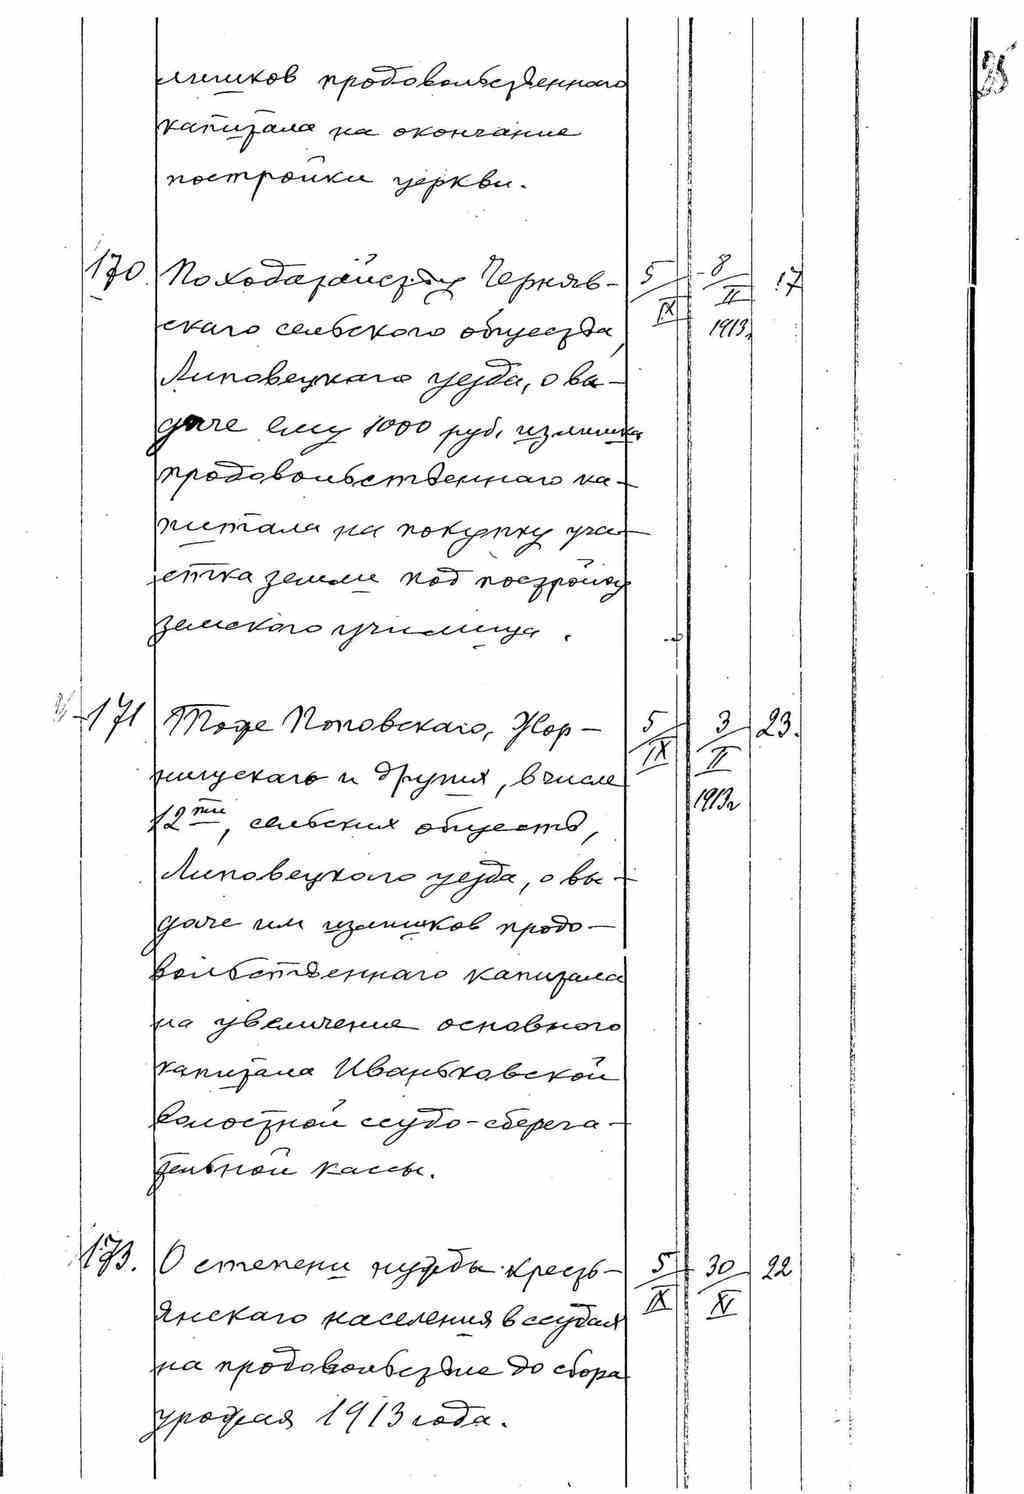 лишков продовольственнаго
капитала на окончание
постройки церкви.
170. По ходатайству Черняв- 5/IX 8/II 1913г. 17
скаго сельского общества,
Липовецкаго уезда, о вы-
даче ему 1000 руб. излишка
продовольственнаго ка-
питала на покупку уча-
стка земли под постройку
земского училища.
171 Тоже Поповскаго, 5/IX 3/II 1913г 23.
и других, в числе
12ти, сельских обществ,
Липовецкого уезда, о вы-
даче им излишков продо-
вольственнаго капитала
на увеличение основного
капитала Иваньковской
волостной ссудо-сберега-
тельной кассы.
173. О степени нужды кресть- 5/IX 30/XI 22
янскаго населения в ссудах
на продовольствие до сбора
урожая 1913 года.